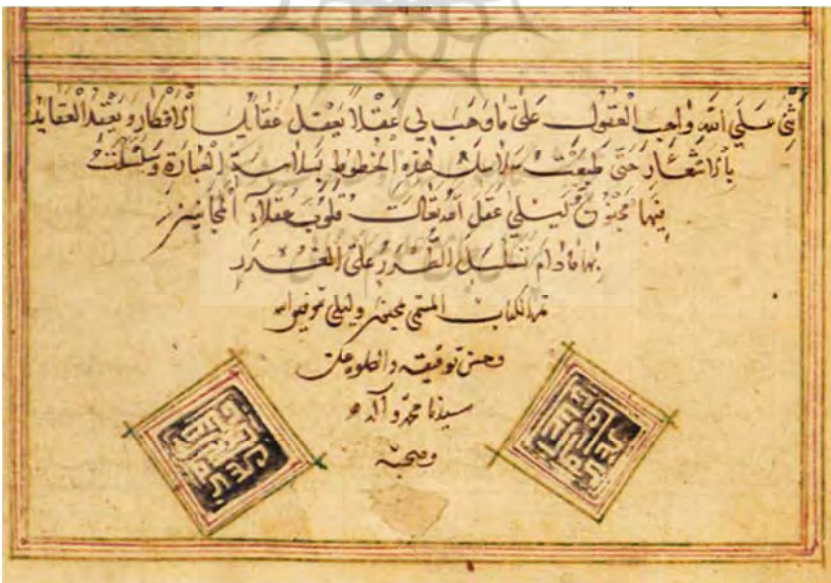 أثني على الله واجب العقول على ما وهب لي عقلاً يعقل عقايل الأفكار ويعقد العقايد
بالأشعار حتى طبعت سلاسل هذه الخطوط بسلاسة العبارة وسلسلت
فيها مجنون ليلى عقل الله تعالى قلوب عقلاء المجانين
بها ما دام تسلسل الطرر على الغرر
تم الكتاب المسمى بمجنون وليلى توفيق الله
وحسن توفيقه والصلوة على
سيدنا محمد وآله
وصحبه